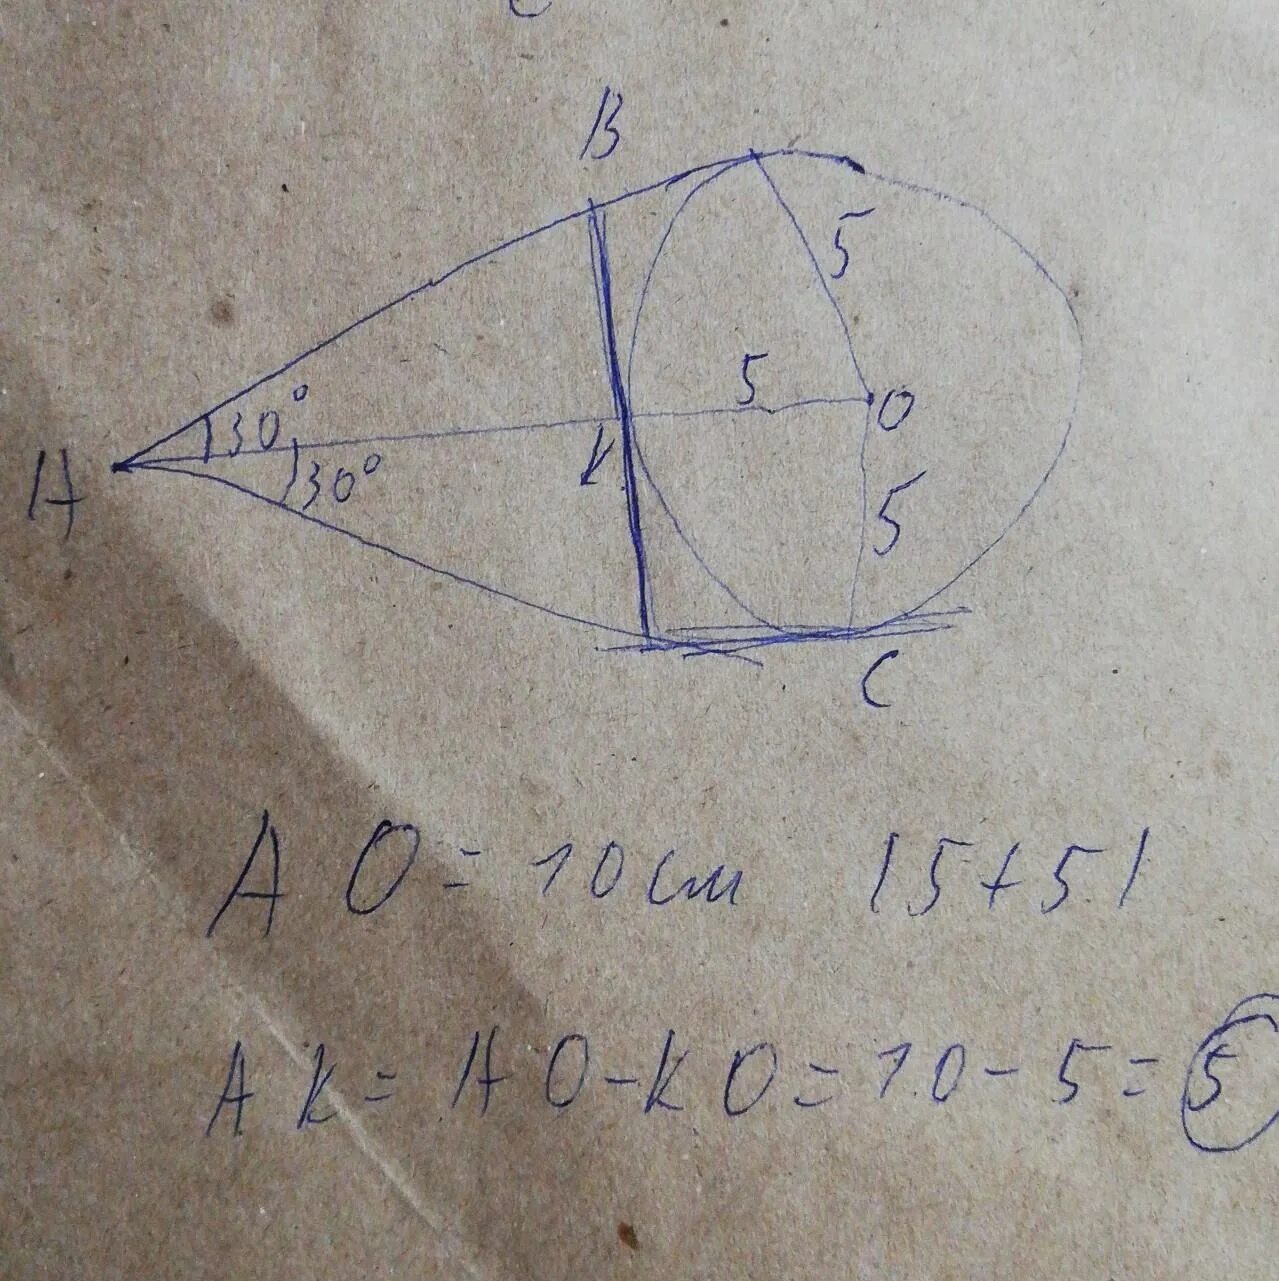 B
5
30°
5
O
A
K
30°
5
C
AO = 10 см (5+5)
AK = AO - KO = 10 - 5 = 5